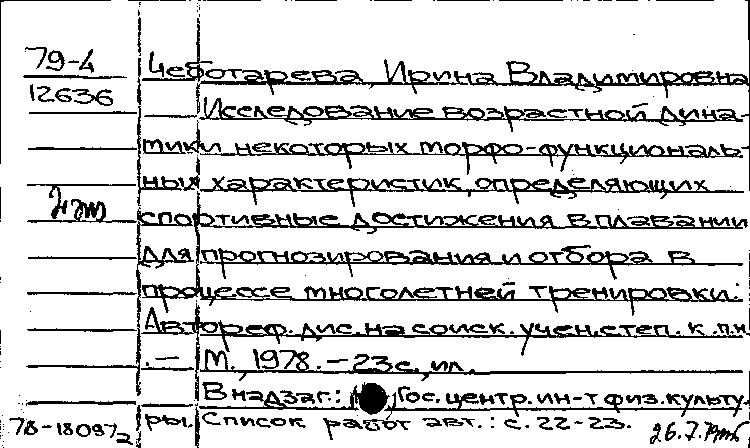 79-4 Чеботарева, Ирина Владимировна
12636 Исследование возрастной дина-
мики некоторых морфо-функциональ-
ных характеристик, определяющих
спортивные достижения в плавании
для прогнозирования и отбора в
процессе многолетней тренировки:
Автореф. дис. на соиск. учен. степ. к.п.н
.— М., 1978. — 23 с., ил.
В надзаг.: Гос. центр. ин-т физ. культу-
ры. Список работ авт.: с. 22-23.